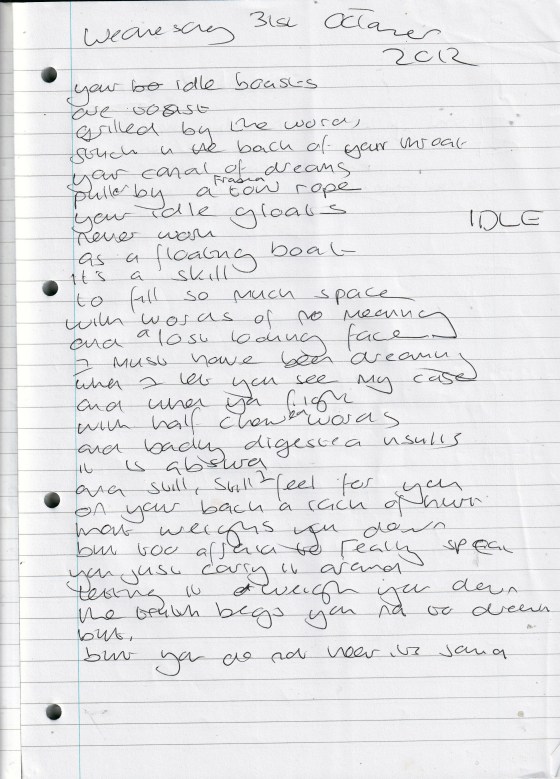 Wednesday 31st October
2012
your idle boasts
are toast
grilled by the words,
stuck in the back of your throat
your canal of dreams
by a frozen tow rope
your idle gloats
IDLE
never worn
as a floating boat
it's a skill
to fill so much space
with words of no meaning
and a lost looking face
I must have been dreaming
when I let you see my case
and when ya fight
with half chewed words
and badly digested insults
it is absurd
and still, still I feel for you
on your back a sack of hurt
that weighs you down
but too afraid to really speak
you just carry it around
letting it weigh you down
the truth begs you not to drown
but,
but you do not hear its sound